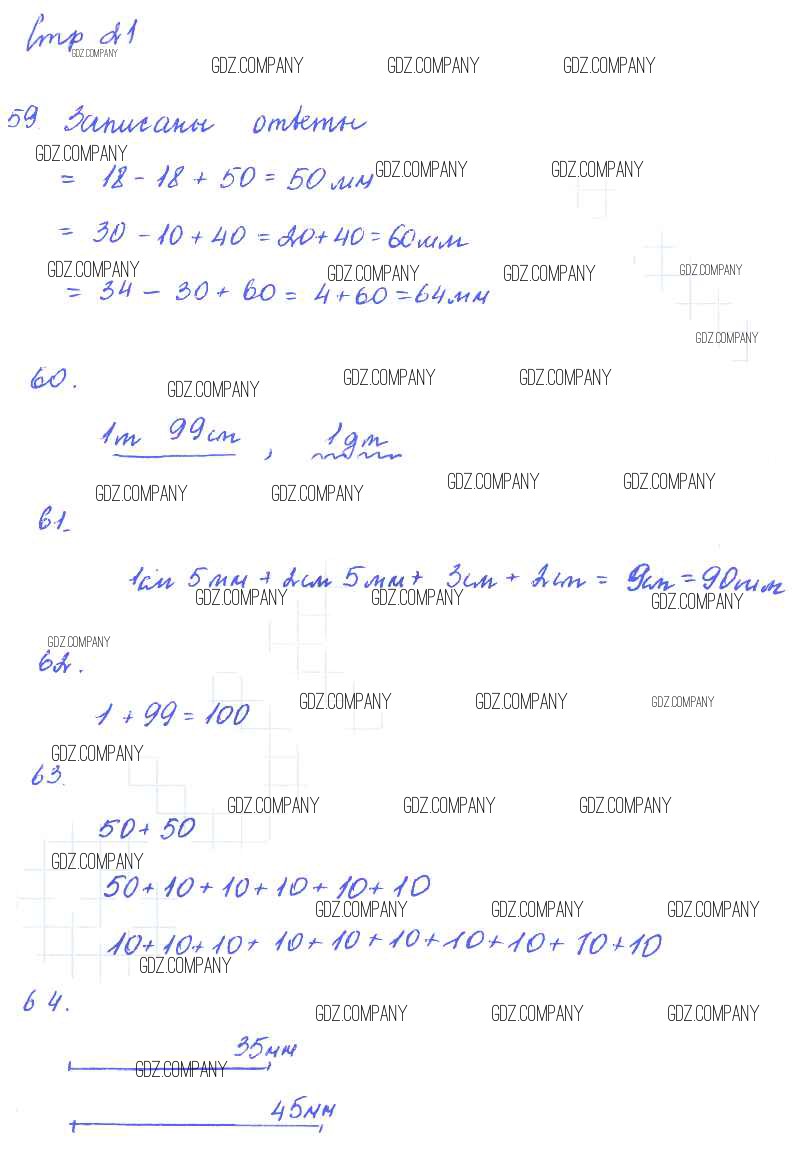 Стр 21
GDZ.COMPANY
GDZ.COMPANY GDZ.COMPANY GDZ.COMPANY
59. Записаны ответы
GDZ.COMPANY
GDZ.COMPANY GDZ.COMPANY
= 18 - 18 + 50 = 50 мм
= 30 - 10 + 40 = 20 + 40 = 60 мм
GDZ.COMPANY GDZ.COMPANY GDZ.COMPANY GDZ.COMPANY
= 34 - 30 + 60 = 4 + 60 = 64 мм
GDZ.COMPANY
60.
GDZ.COMPANY GDZ.COMPANY GDZ.COMPANY
1м 99см , 1дм
GDZ.COMPANY GDZ.COMPANY GDZ.COMPANY GDZ.COMPANY
61.
1см 5мм + 2см 5мм + 3см + 2см = 9см = 90мм
GDZ.COMPANY GDZ.COMPANY GDZ.COMPANY
GDZ.COMPANY
62.
GDZ.COMPANY GDZ.COMPANY GDZ.COMPANY
1 + 99 = 100
GDZ.COMPANY
63.
GDZ.COMPANY GDZ.COMPANY GDZ.COMPANY
50 + 50
GDZ.COMPANY
50 + 10 + 10 + 10 + 10 + 10
GDZ.COMPANY GDZ.COMPANY GDZ.COMPANY
10 + 10 + 10 + 10 + 10 + 10 + 10 + 10 + 10 + 10
GDZ.COMPANY
64.
GDZ.COMPANY GDZ.COMPANY GDZ.COMPANY
35мм
GDZ.COMPANY
45мм